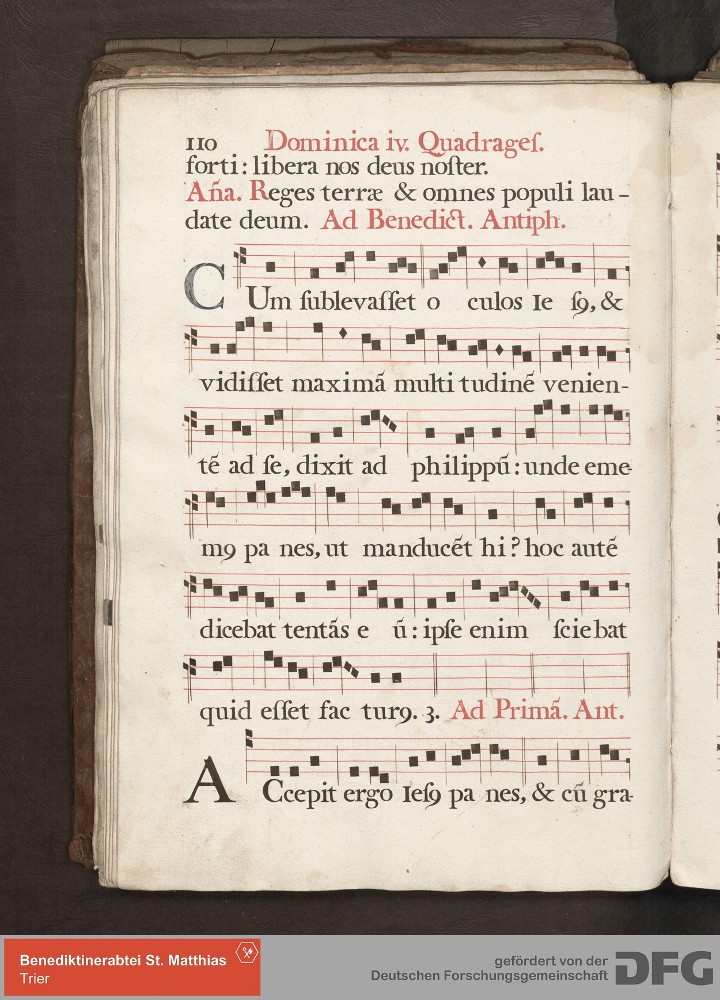 110 Dominica iv. Quadrageſ.
forti: libera nos deus noſter.
Aña. Reges terræ & omnes populi lau-
date deum. Ad Benedict. Antiph.
CUm ſublevaſſet o culos Ie ſꝯ, &
vidiſſet maximã multi tudinẽ venien-
tẽ ad ſe, dixit ad philippũ: unde eme
mꝯ pa nes, ut manducẽt hi? hoc autẽ
dicebat tentãs e ũ: ipſe enim ſciebat
quid eſſet fac turꝯ. 3. Ad Primã. Ant.
ACcepit ergo Ieſꝯ pa nes, & cũ gra-
Benediktinerabtei St. Matthias
Trier
gefördert von der
Deutschen Forschungsgemeinschaft
DFG